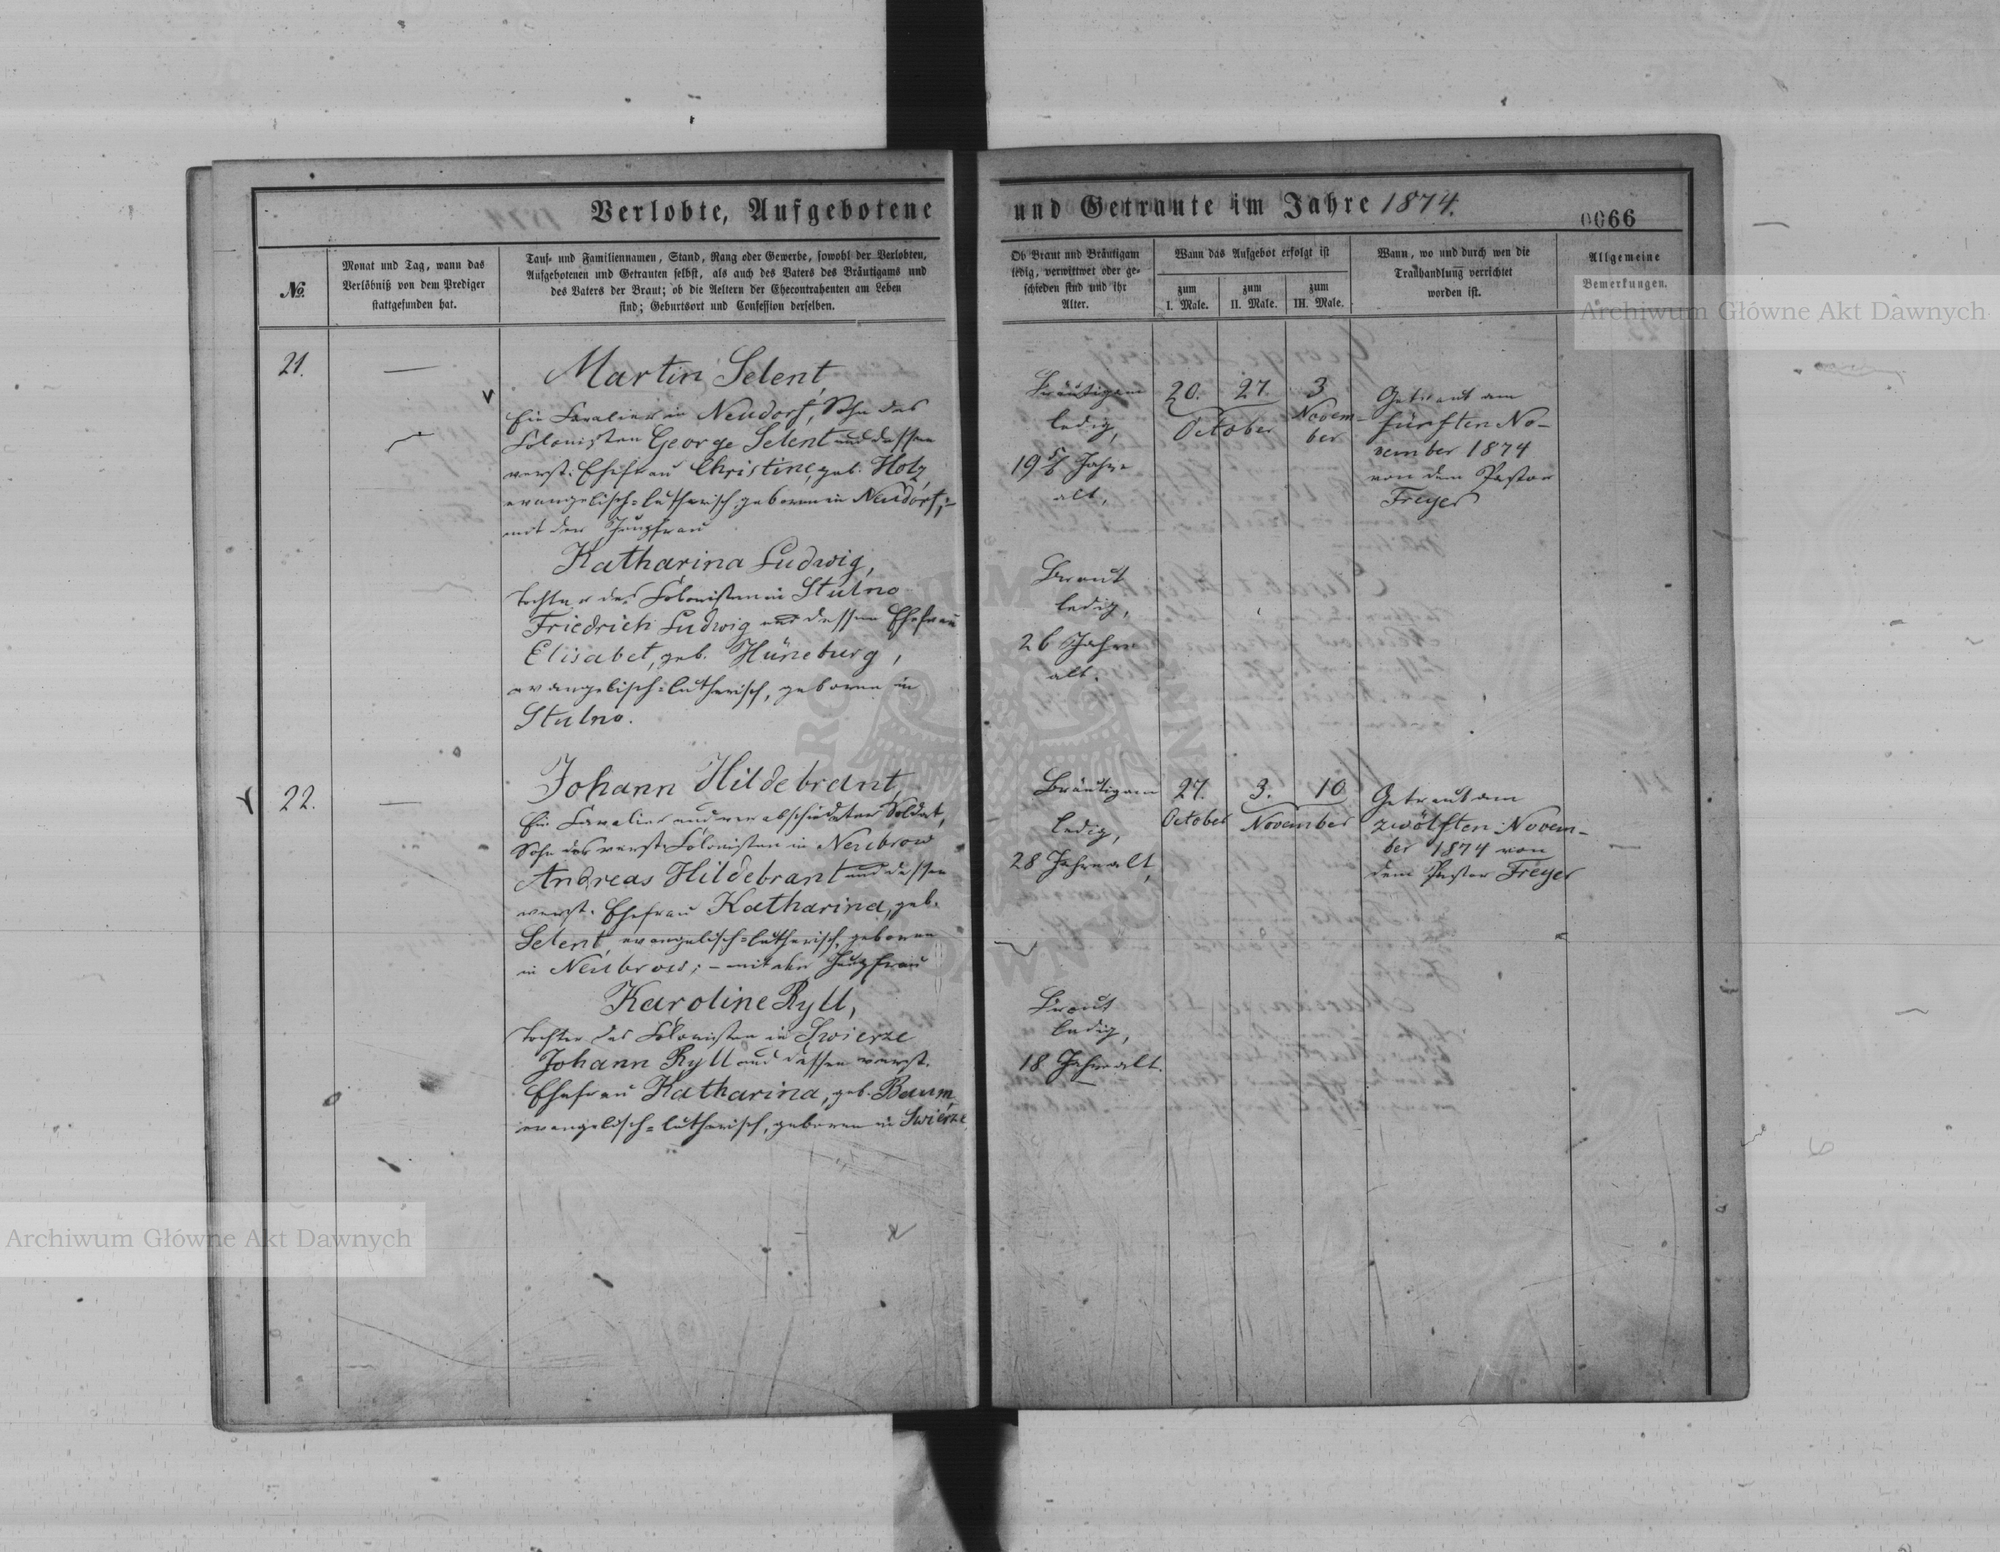 Verlobte, Aufgebotene und Getraute im Jahre 1874.
0066
№.
Monat und Tag, wann das
Verlöbniß von dem Prediger
stattgefunden hat.
Tauf- und Familiennamen, Stand, Rang oder Gewerbe, sowohl der Verlobten,
Aufgebotenen und Getrauten selbst, als auch des Vaters des Bräutigams und
des Vaters der Braut; ob die Aeltern der Ehecontrahenten am Leben
sind; Geburtsort und Confession derselben.
Ob Braut und Bräutigam
ledig, verwittwet oder ge-
schieden sind und ihr
Alter.
Wann das Aufgebot erfolgt ist
zum
I. Male.
zum
II. Male.
zum
III. Male.
Wann, wo und durch wen die
Trauhandlung verrichtet
worden ist.
Allgemeine
Bemerkungen.
21.
—
Martin Selent,
Ein Cavalier in Neudorf, Sohn des
Colonisten George Selent und dessen
verst. Ehefrau Christine, geb. Holz
evangelisch-lutherisch, geboren in Neudorf, –
mit der Jungfrau
Katharina Ludwig,
Tochter des Colonisten in Stulno
Friedrich Ludwig und dessen Ehefrau
Elisabet, geb. Hüneburg,
evangelisch-lutherisch, geboren in
Stulno.
Bräutigam
ledig,
19 Jahre
alt,
Braut
ledig,
26 Jahre
alt.
20. 27. 3
October Novem-
ber
Getraut am
fünften No-
vember 1874
von dem Pastor
Freyer
22.
—
Johann Hildebrant,
Ein Cavalier und verabschiedeter Soldat,
Sohn des verst. Colonisten in Neubrow
Andreas Hildebrant und dessen
verst. Ehefrau Katharina, geb.
Selent, evangelisch-lutherisch, geboren
in Neubrow; – mit der Jungfrau
Karoline Ryll,
Tochter des Colonisten in Swierze
Johann Ryll und dessen verst.
Ehefrau Katharina, geb. Baum,
evangelisch-lutherisch, geboren in Swierze
Bräutigam
ledig,
28 Jahre alt,
Braut
ledig,
18 Jahre alt.
27. 3. 10
October November
Getraut am
zwölften Novem-
ber 1874 von
dem Pastor Freyer
Archiwum Główne Akt Dawnych
Archiwum Główne Akt Dawnych